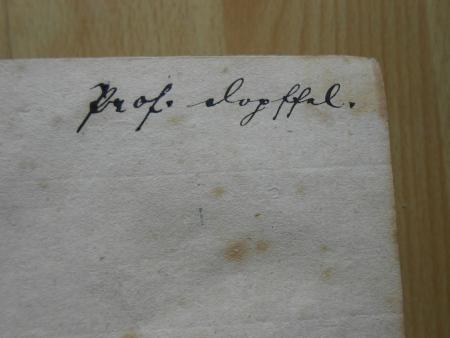 Prof. Dopffel.